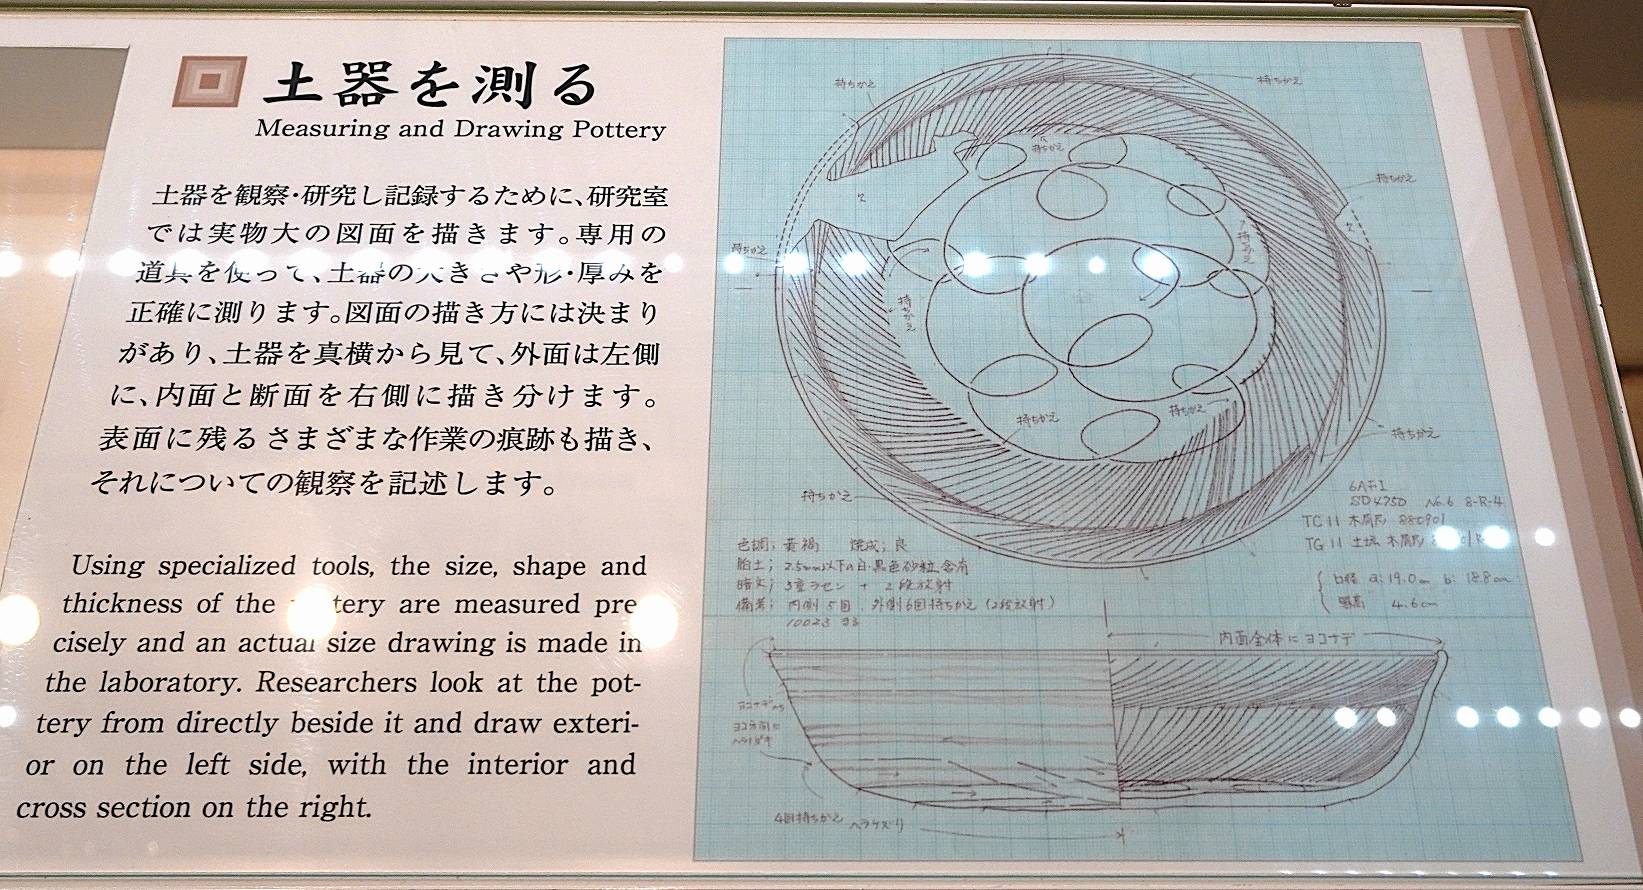 土器を測る
Measuring and Drawing Pottery
土器を観察・研究し記録するために、研究室
では実物大の図面を描きます。専用の
道具を使って、土器の大きさや形・厚みを
正確に測ります。図面の描き方には決まり
があり、土器を真横から見て、外面は左側
に、内面と断面を右側に描き分けます。
表面に残るさまざまな作業の痕跡も描き、
それについての観察を記述します。
Using specialized tools, the size, shape and
thickness of the tery are measured pre
cisely and an actual size drawing is made in
the laboratory. Researchers look at the pot-
tery from directly beside it and draw exteri-
or on the left side, with the interior and
cross section on the right.
持ちかえ
持ちかえ
持ちかえ
持ちかえ
持ちかえ
持ちかえ
持ちかえ
持ちかえ
持ちかえ
持ちかえ
持ちかえ
6AFI
SD4750 No.6 8-R-4
TC11 木屑層 880901
TG11 土坑 木屑層
色調; 黄褐 焼成; 良
胎土; 2.5mm以下の白・黒色砂粒含有
暗文; 3重ラセン + 2段放射
備考; 内側5回、外側6回持ちかえ (2段放射)
口径 a: 19.0cm b: 18.8cm
器高 4.6cm
内面全体にヨコナデ
4回持ちかえ ヘラケズリ